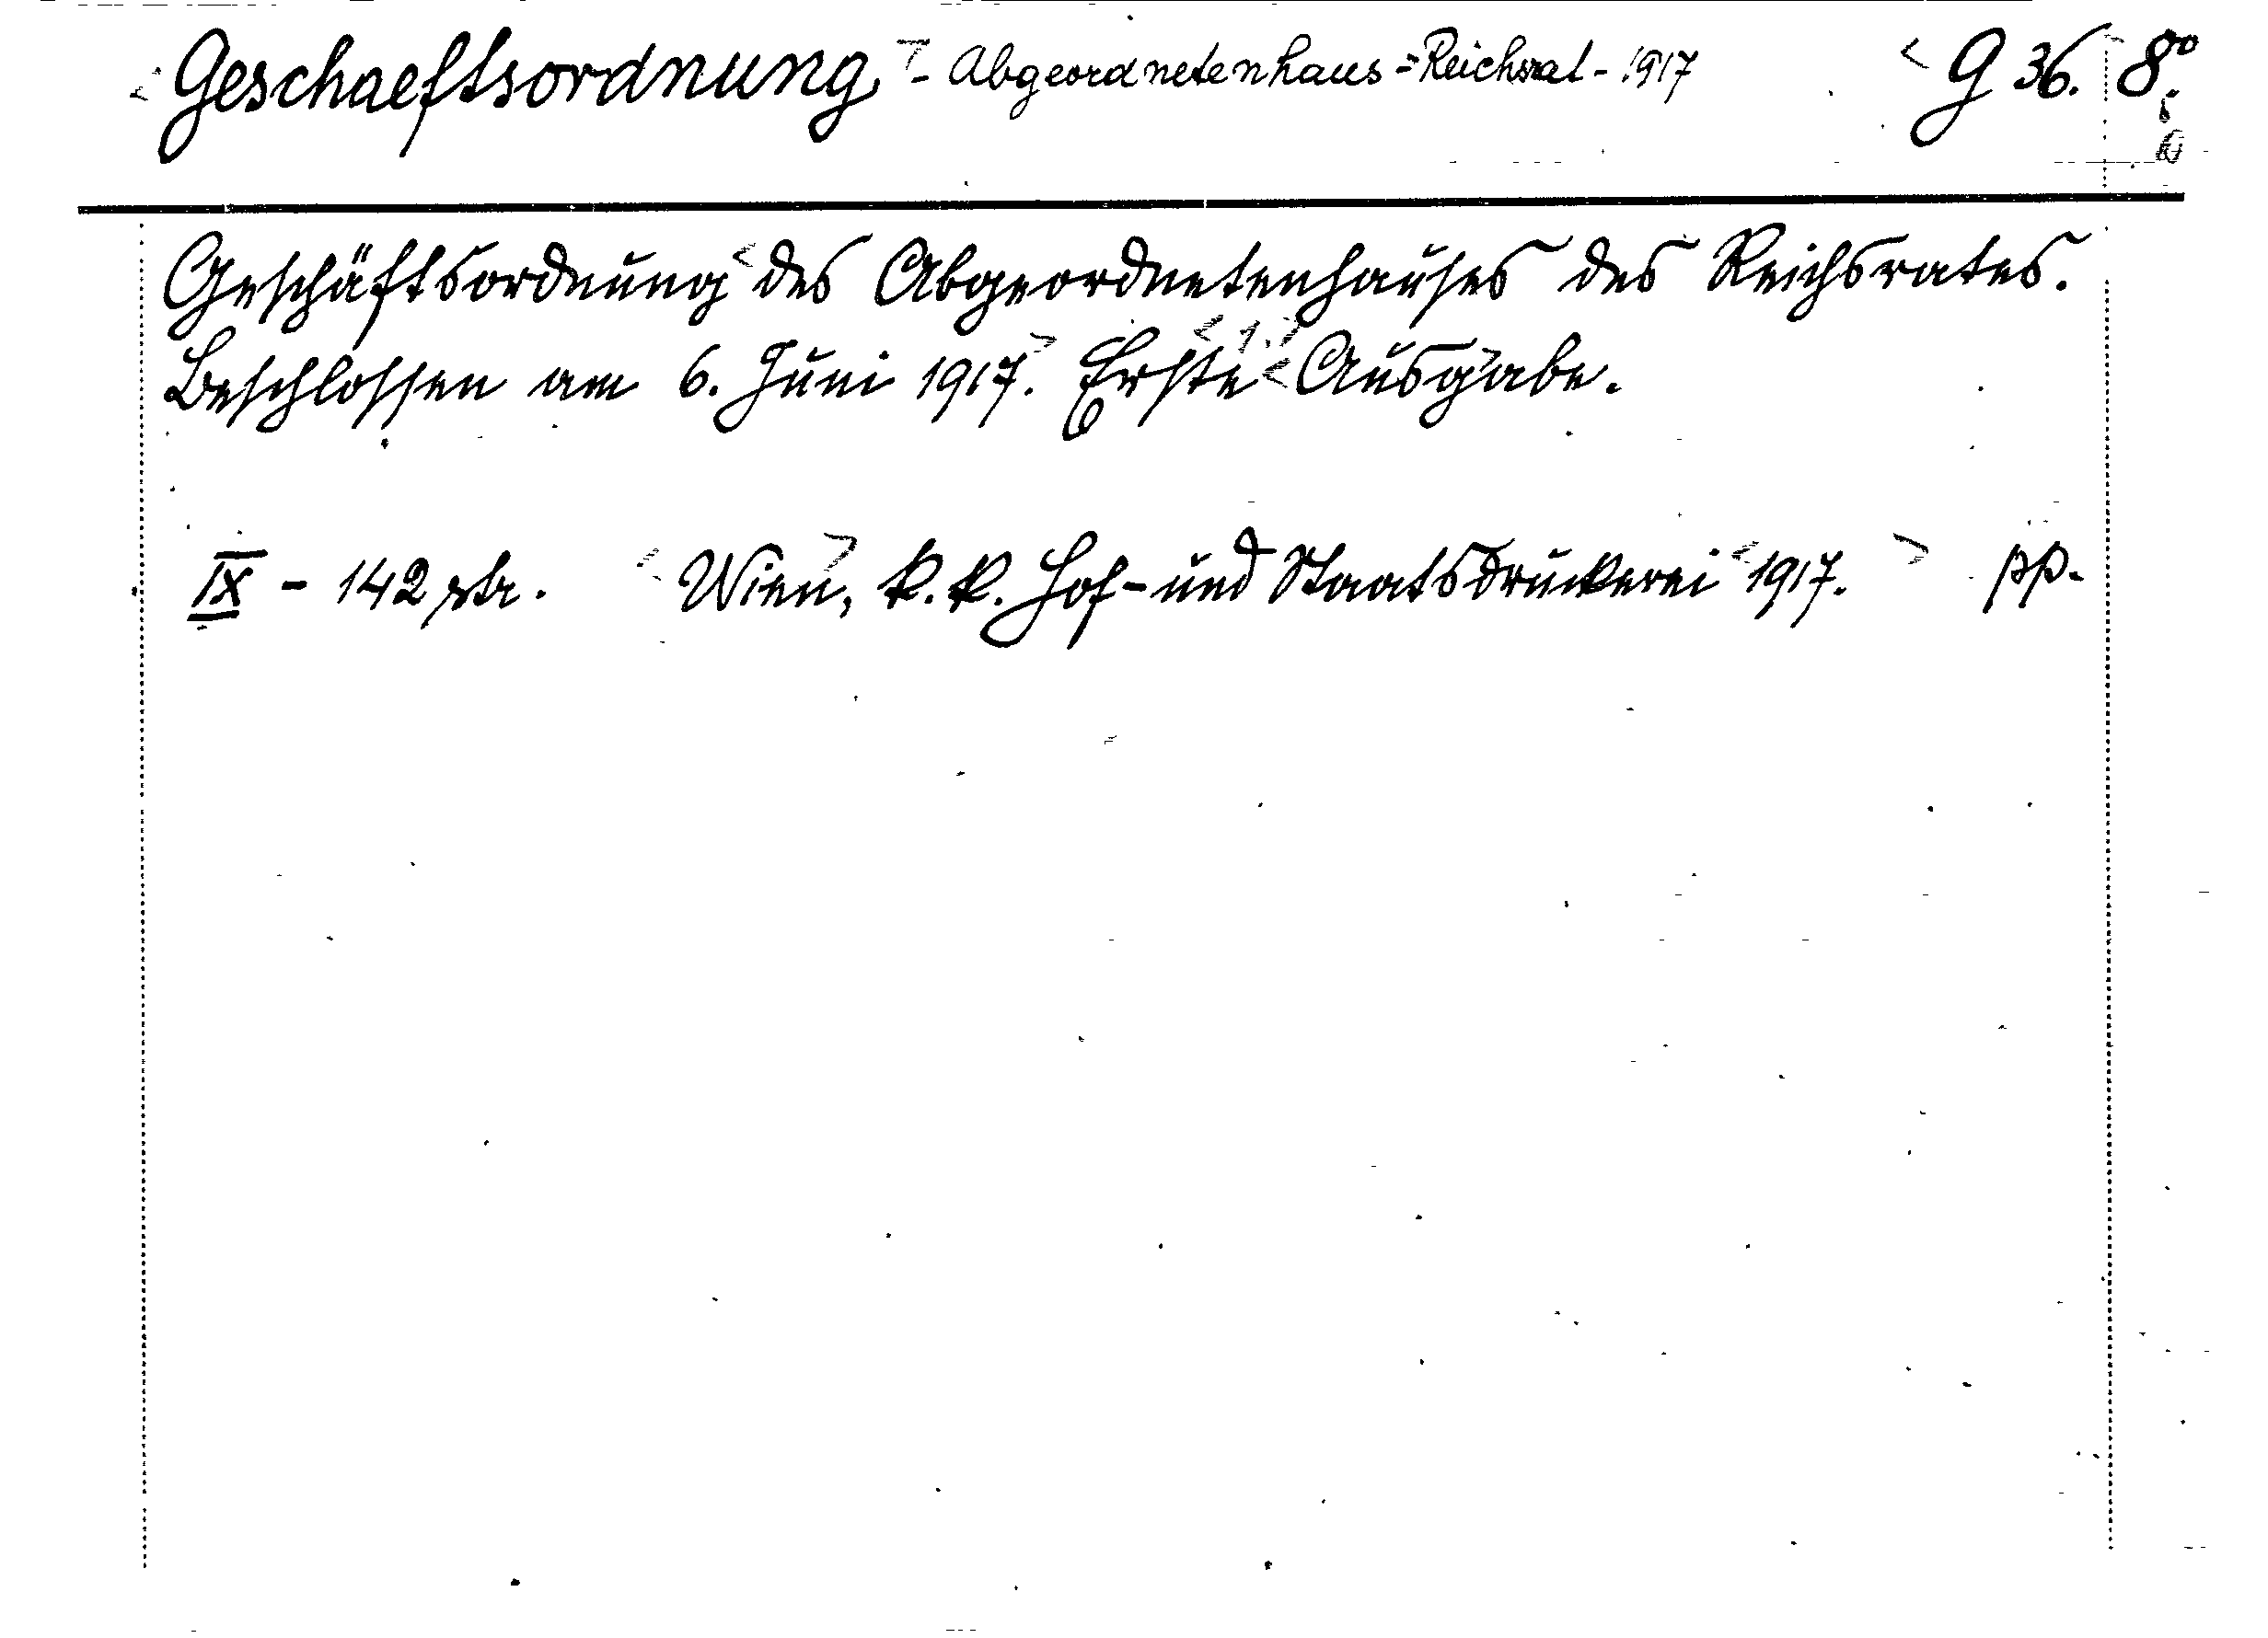 Geschaeftsordnung - Abgeordnetenhaus = Reichsrat - 1917 G 36. 8°.
Geschäftsordnung des Abgeordnetenhauses des Reichsrates.
Beschlossen am 6. Juni 1917. Erste Ausgabe.
IX - 142 str. Wien, k. k. Hof- und Staatsdruckerei 1917. pp.